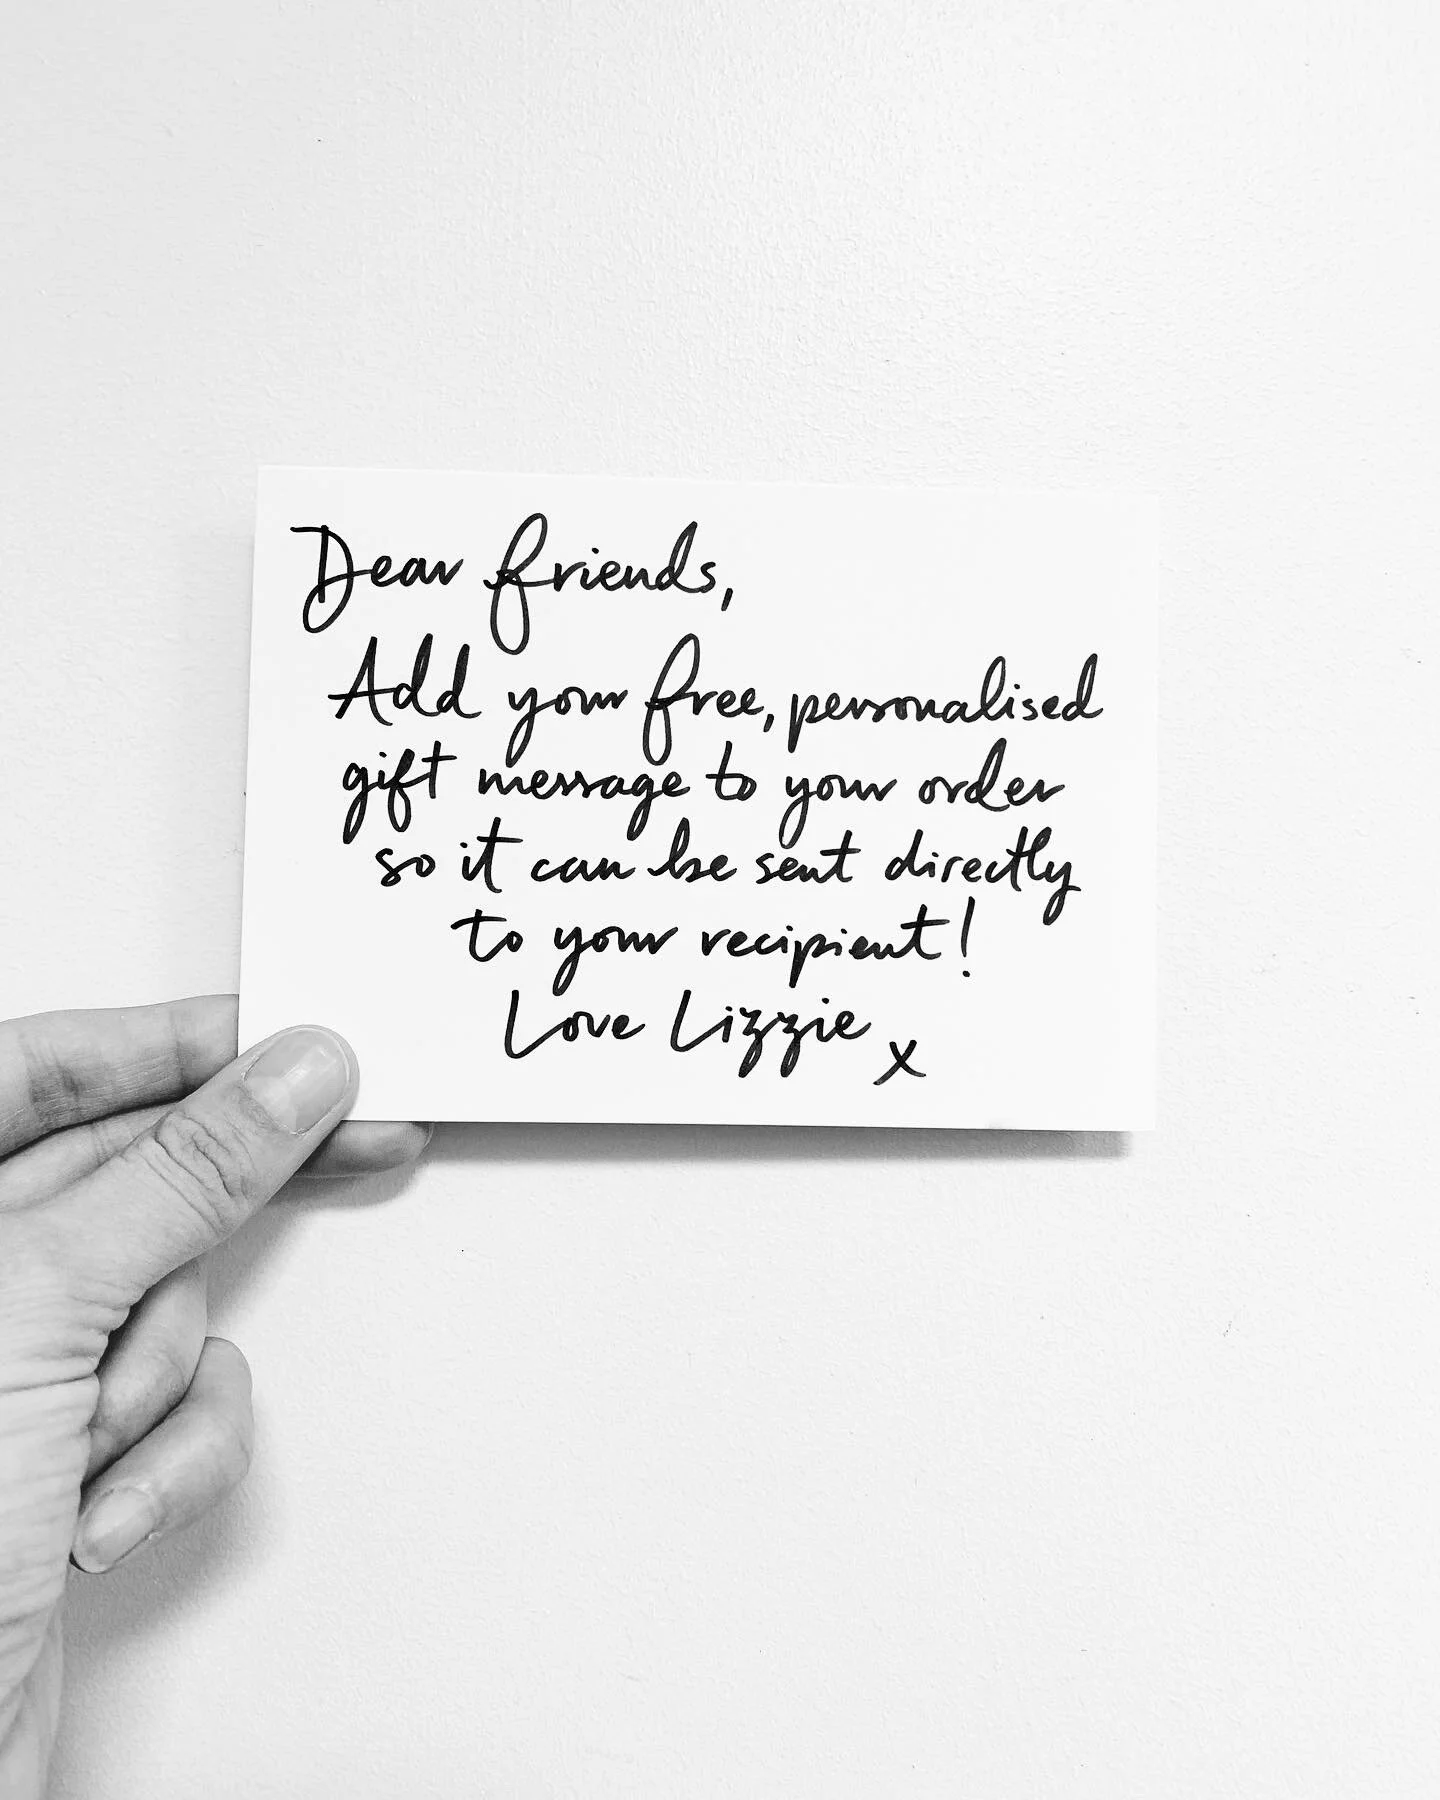 Dear friends,
Add your free, personalised
gift message to your order
so it can be sent directly
to your recipient!
Love Lizzie x